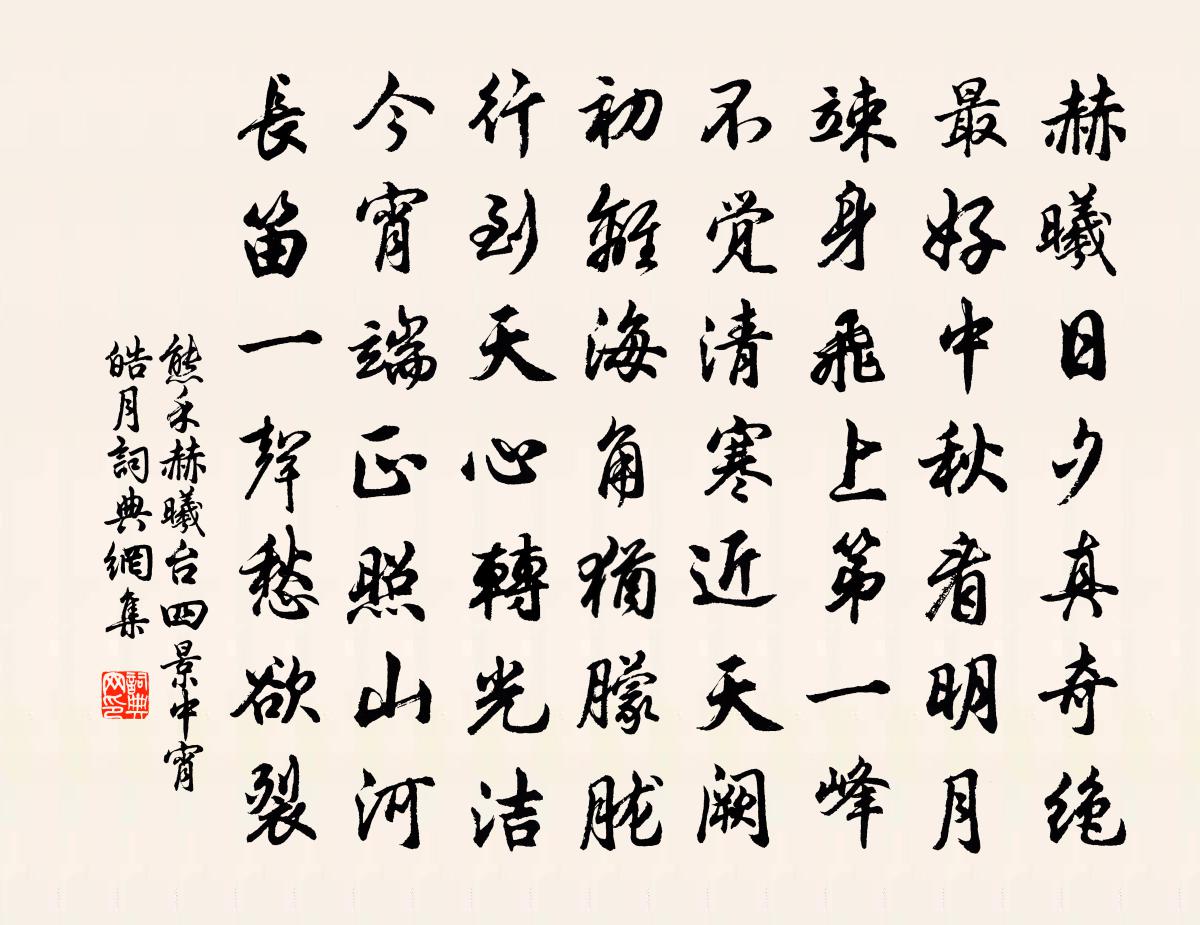 赫曦日夕真奇绝
最好中秋看明月
竦身飛上第一峰
不觉清寒近天阙
初離海角猶朦胧
行到天心轉光洁
今宵端正照山河
長笛一聲愁欲裂
熊禾赫曦台四景中宵
皓月詞典網集
詞典网印